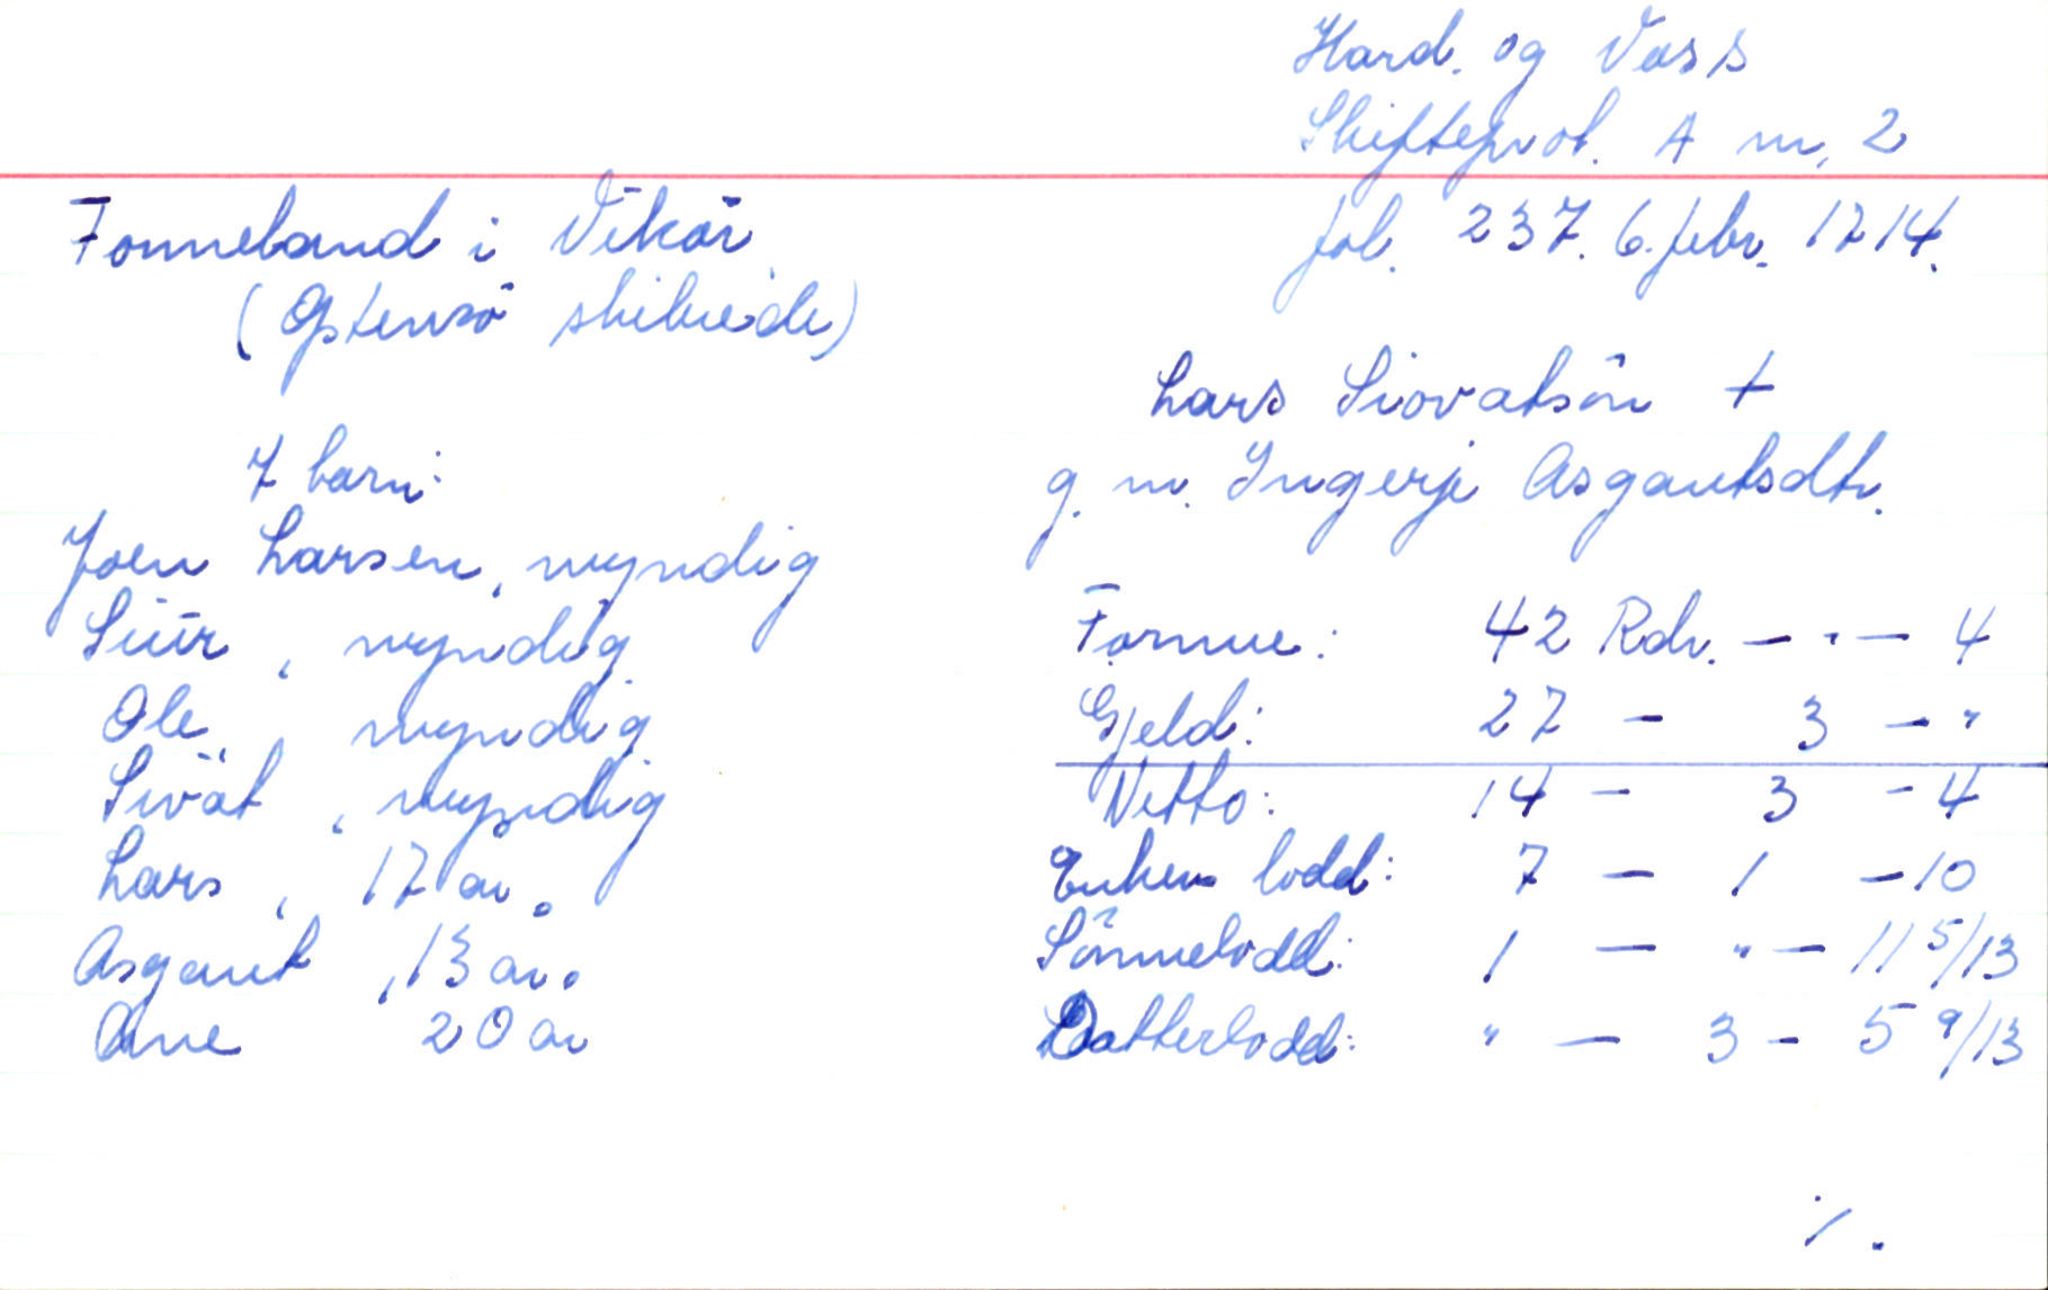 Hard. og Voss
Skifteprot. A nr. 2
fol. 237. 6. febr. 1714.
Fonneland i Vikör
(Östensö skibrede)
Lars Siovatsön +
g. m. Ingerje Asgautsdtr.
7 barn:
Joen Larsen, myndig
Siür, myndig
Ole, myndig
Sivat, myndig
Lars, 17 år.
Asgaut, 13 år.
Ane 20 år
Formue: 42 Rdr. - " - 4
Gjeld: 27 - 3 - "
Netto: 14 - 3 - 4
Enkens lodd: 7 - 1 - 10
Sönnelodd: 1 - " - 11 5/13
Datterlodd: " - 3 - 5 9/13
./.